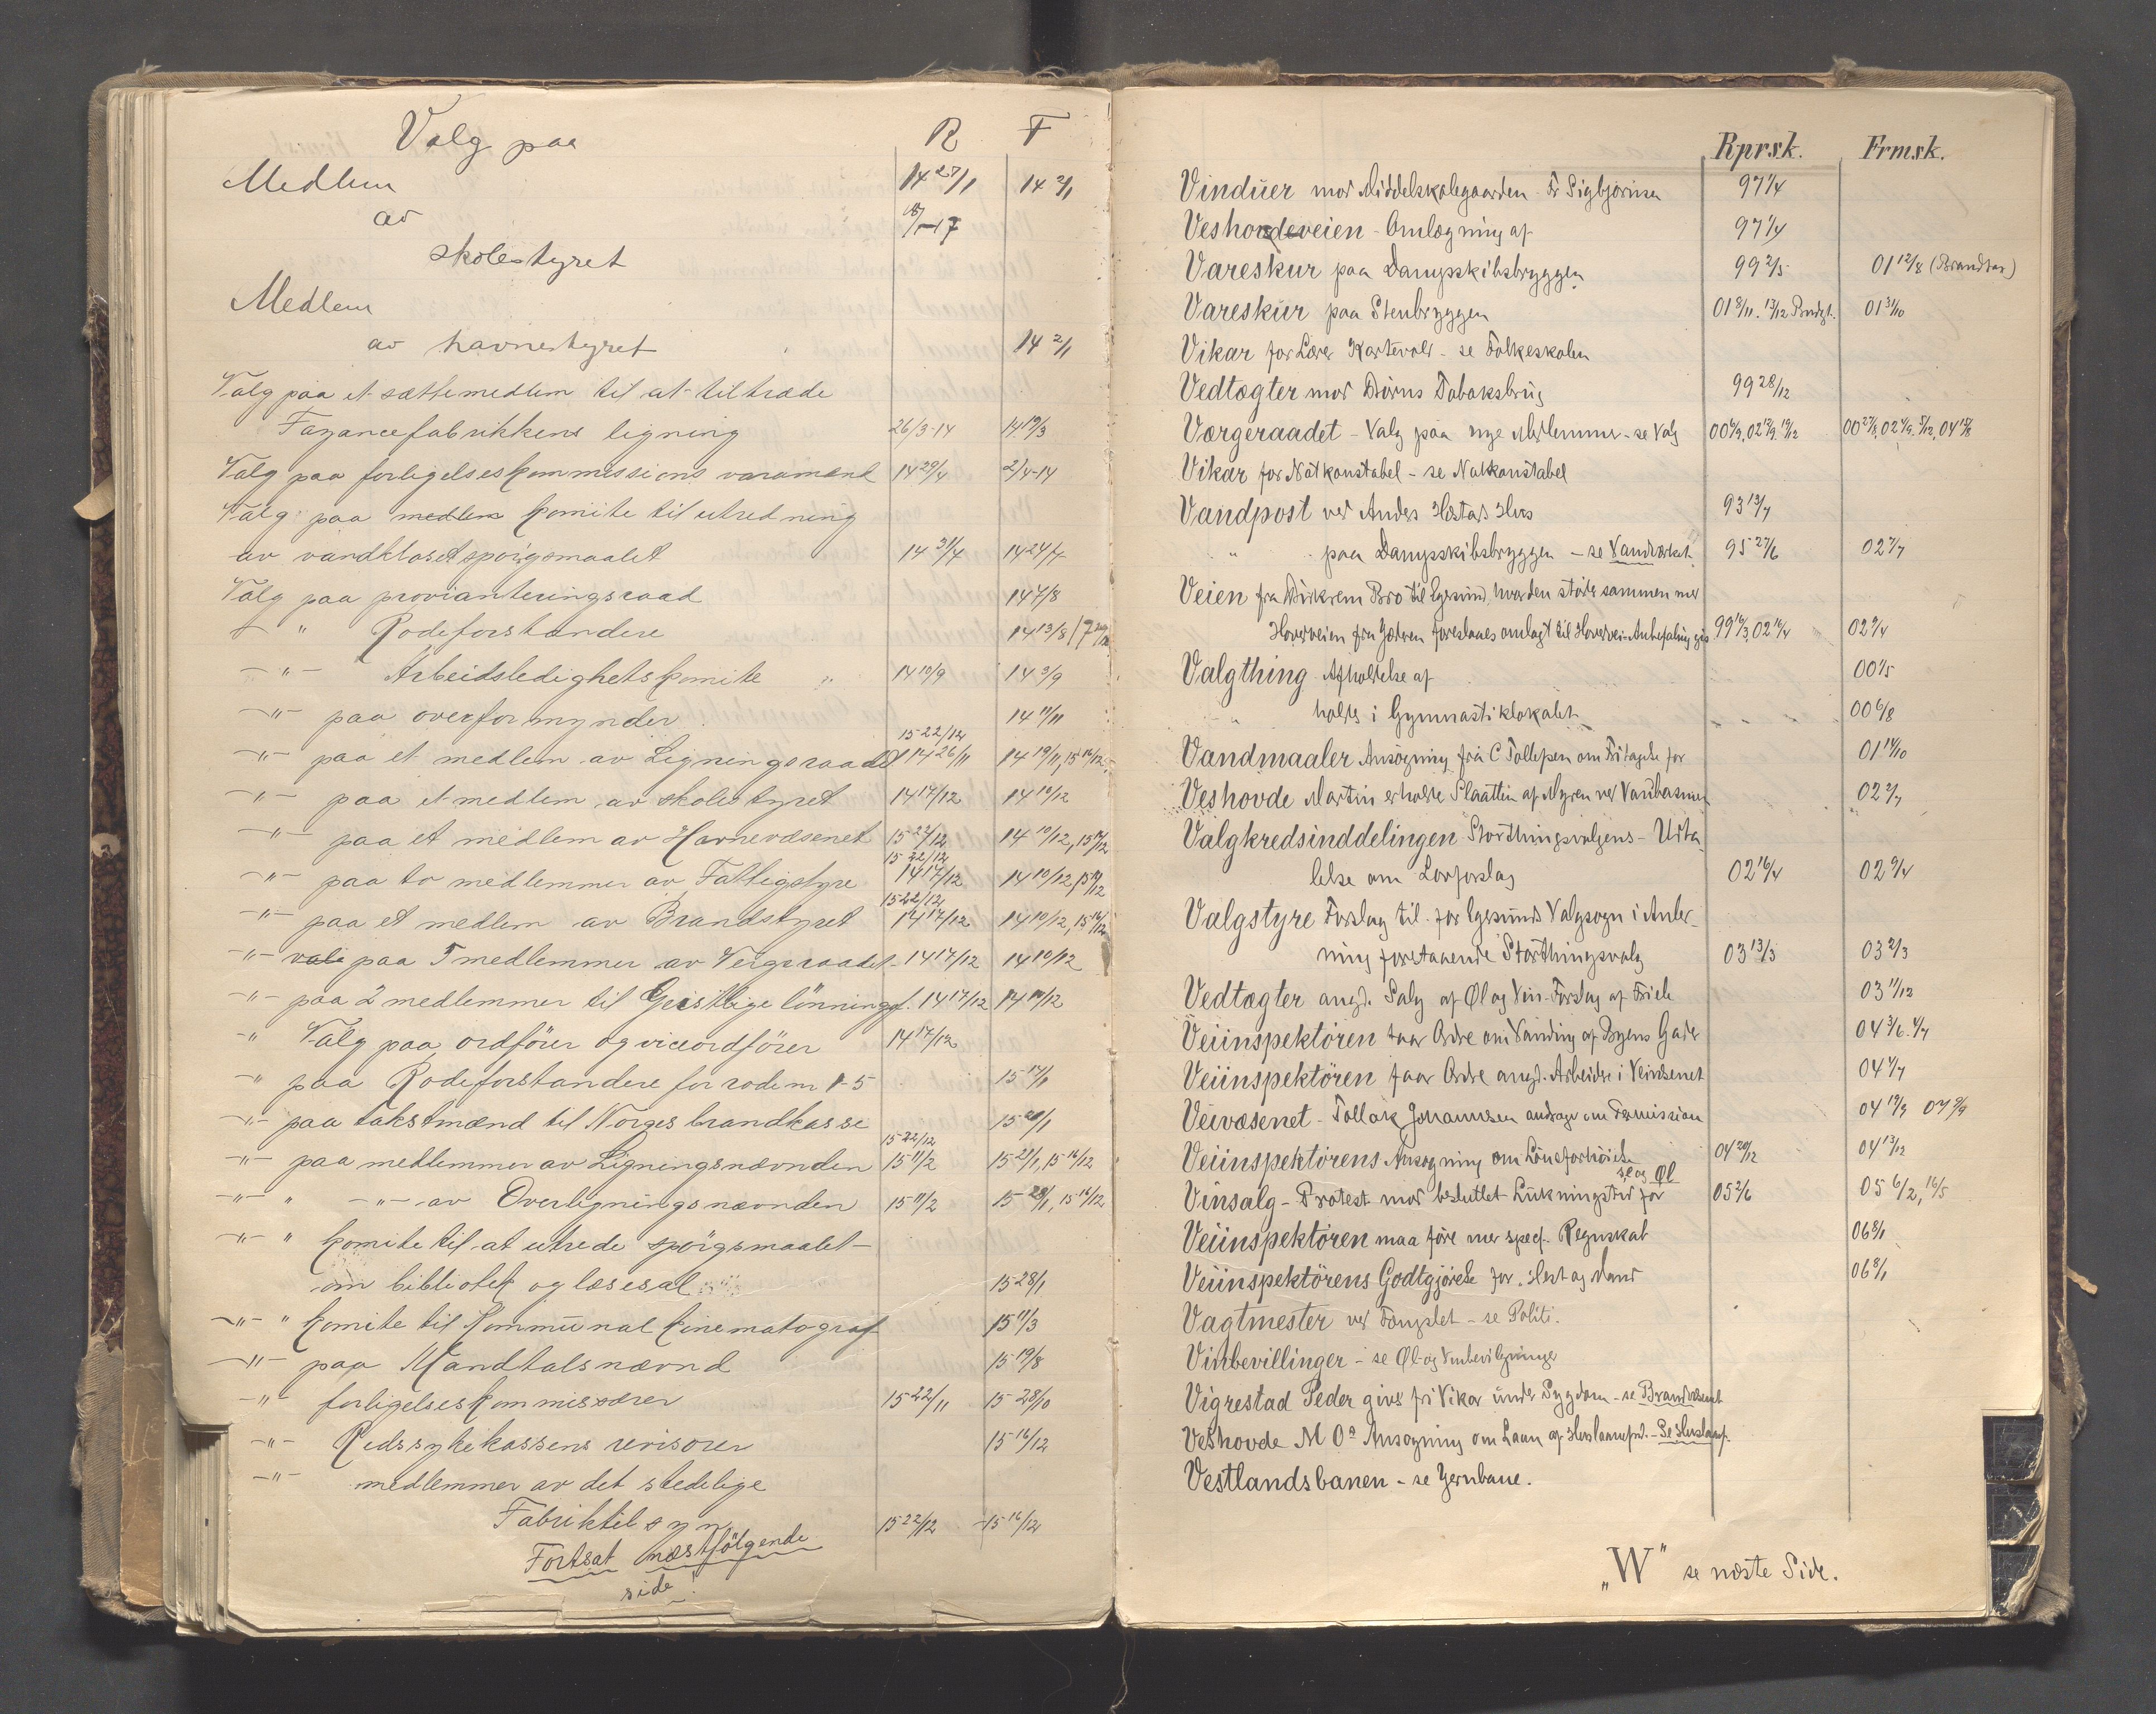 Valg paa R F
Medlem 14 27/1 14 2/1
av 18/1-17
skolestyret
Medlem
av havnestyret 14 2/1
Valg paa et sættemedlem til at tiltræde
Fayancefabrikkens ligning 26/3-14 14 19/3
Valg paa forligelseskommissions varamænd 14 29/4 2/4-14
Valg paa medlem komite til utredning
av vandklosetspørgsmaalet 14 24/4
Valg paa provianteringsraad 14 7/8
-"- Rodeforstandere 14 13/8
-"- Arbeidsledighetskomite 14 10/9 14 3/9
-"- paa overformynder 14 11/11
15 22/12
-"- paa et medlem av Ligningsraadet 14 26/11 14 19/11, 15 16/12
-"- paa et medlem av skolestyret 14 17/12 14 10/12
-"- paa et medlem av Havnevæsenet 15 22/12 14 10/12, 15 16/12
15 22/12
-"- paa to medlemmer av Fattigstyre 14 17/12 14 10/12, 15 16/12
15 22/12
-"- paa et medlem av Brandstyret 14 17/12 14 10/12, 15 16/12
-"- paa 5 medlemmer av Vergeraadet 14 17/12 14 10/12
-"- paa 2 medlemmer til Geistlige lönningsf. 14 17/12 14 10/12
-" Valg paa ordförer og viceordförer 14 17/12
-" paa Rodeforstandere for rode nr 1-5
-"- paa takstmænd til Norges brandkasse
15 22/12
-"- paa medlemmer av Ligningsnævnden 15 11/2 15 28/1, 15 16/12
-"- " -"- av Overligningsnævnden 15 11/2 15 28/1, 15 16/12
-"- " komite til at utrede spörgsmaalet
om bibliotek og læsesal 15 28/1
-"- " komite til Kommunal kinematograf 15 11/3
-"- paa Mandtalsnævnd 15 19/8
-"- forligelseskommisærer 15 22/11 15 28/10
-"- Kredssykekassens revisorer 15 16/12
-"- medlemmer av det stedelige
Fabriktilsyn 15 22/12 15 16/12
Fortsat næstfölgende
side!
Rprsk. Frmsk.
Vinduer mod Middelskolegaarden Fr Sigbjörnsen 97 1/4
Veshovdeveien - Omlægning af 97 1/4
Vareskur paa Dampskibsbryggen 99 2/5 01 12/8 (Brandtax)
Vareskur paa Stenbryggen 01 8/11. 13/12 Budgt. 01 31/10
Vikar for Lærer Kartevold - se Folkeskolen
Vedtægter mod Börns Tobaksbrug 99 28/12
Værgeraadet - Valg paa nye Medlemmer - se Valg
Vikar for Natkonstabel - se Natkonstabel
Vandpost ved Anders Hestads Hus 93 13/7
" paa Dampskibsbryggen - se Vandværket 95 27/6 02 7/7
Veien fra Birkrem Bro til Egersund, hvor den stöder sammen med
Hovedveien fra Jæderen foreslaaes omlagt til Hovedvei - Anbefaling gis 02 9/4
Valgthing Afholdelse af 00 1/5
" holdes i Gymnastiklokalet 00 6/8
Vandmaaler Ansögning fra C Tollefsen om Fritagelse for 01 14/10
Veshovde Martin erholder Slaatten af Myren ved Vandbasinet 02 7/7
Valgkredsinddelingen Storthingsvalgens - Udta-
lelse om Lovforslag 02 16/4 02 9/4
Valgstyre Forslag til for Egersunds Valgsogn i Anled-
ning forestaaende Storthingsvalg 03 13/3 03 2/3
Vedtægter angd. Salg af Øl og Vin - Forslag af Friele 03 11/12
Veiinspektören faar Ordre om Vanding af Byens Gader 04 3/6. 4/7
Veiinspektören faar Ordre angd. Arbeider i Veivæsenet 04 4/7
Veivæsenet - Tollak Johannesen andrager om Permission
Veiinspektörens Ansögning om Löneforhöielse 04 20/12 04 13/12
sl og Øl
Vinsalg - Protest mod besluttet Lukningstid for 05 2/6 05 6/2, 16/5
Veiinspektören maa före mer specf. Regnskab 06 8/1
Veiinspektörens Godtgjörelse for Hest og Mand 06 8/1
Vagtmester ved Fængslet - se Politi.
Vinbevillinger - se Øl- og Vinbevilgninger
Vigrestad Peder gives fri Vikar under Sygdom - se Brandvæsenet
Veshovde M Oa Ansögning om Laan af Huslaanefnd. - Se Huslaanf.
Vestlandsbanen - se Jernbane.
„W" se næste Side.